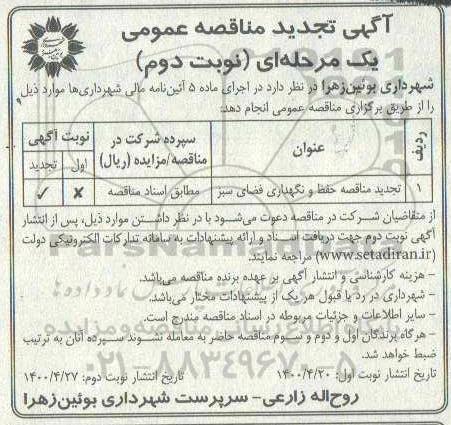 آگهی تجدید مناقصه عمومی
یک مرحله‌ای (نوبت دوم)
شهرداری بوئین‌زهرا در نظر دارد در اجرای ماده ۵ آئین‌نامه مالی شهرداری‌ها موارد ذیل
را از طریق برگزاری مناقصه عمومی انجام دهد:
ردیف
عنوان
سپرده شرکت در
مناقصه/مزایده (ریال)
نوبت آگهی
اول
تجدید
۱
تجدید مناقصه حفظ و نگهداری فضای سبز
مطابق اسناد مناقصه
✘
✓
از متقاضیان شرکت در مناقصه دعوت می‌شود با در نظر داشتن موارد ذیل، پس از انتشار
آگهی نوبت دوم جهت دریافت اسناد و ارائه پیشنهادات به سامانه تدارکات الکترونیکی دولت
(www.setadiran.ir) مراجعه نمایند.
- هزینه کارشناسی و انتشار آگهی بر عهده برنده مناقصه می‌باشد.
- شهرداری در رد یا قبول هر یک از پیشنهادات مختار می‌باشد.
- سایر اطلاعات و جزئیات مربوطه در اسناد مناقصه مندرج است.
- هرگاه برندگان اول و دوم و سوم مناقصه حاضر به معامله نشوند سپرده آنان به ترتیب
ضبط خواهد شد.
تاریخ انتشار نوبت اول: ۱۴۰۰/۴/۲۰
تاریخ انتشار نوبت دوم: ۱۴۰۰/۴/۲۷
روح‌اله زارعی- سرپرست شهرداری بوئین‌زهرا